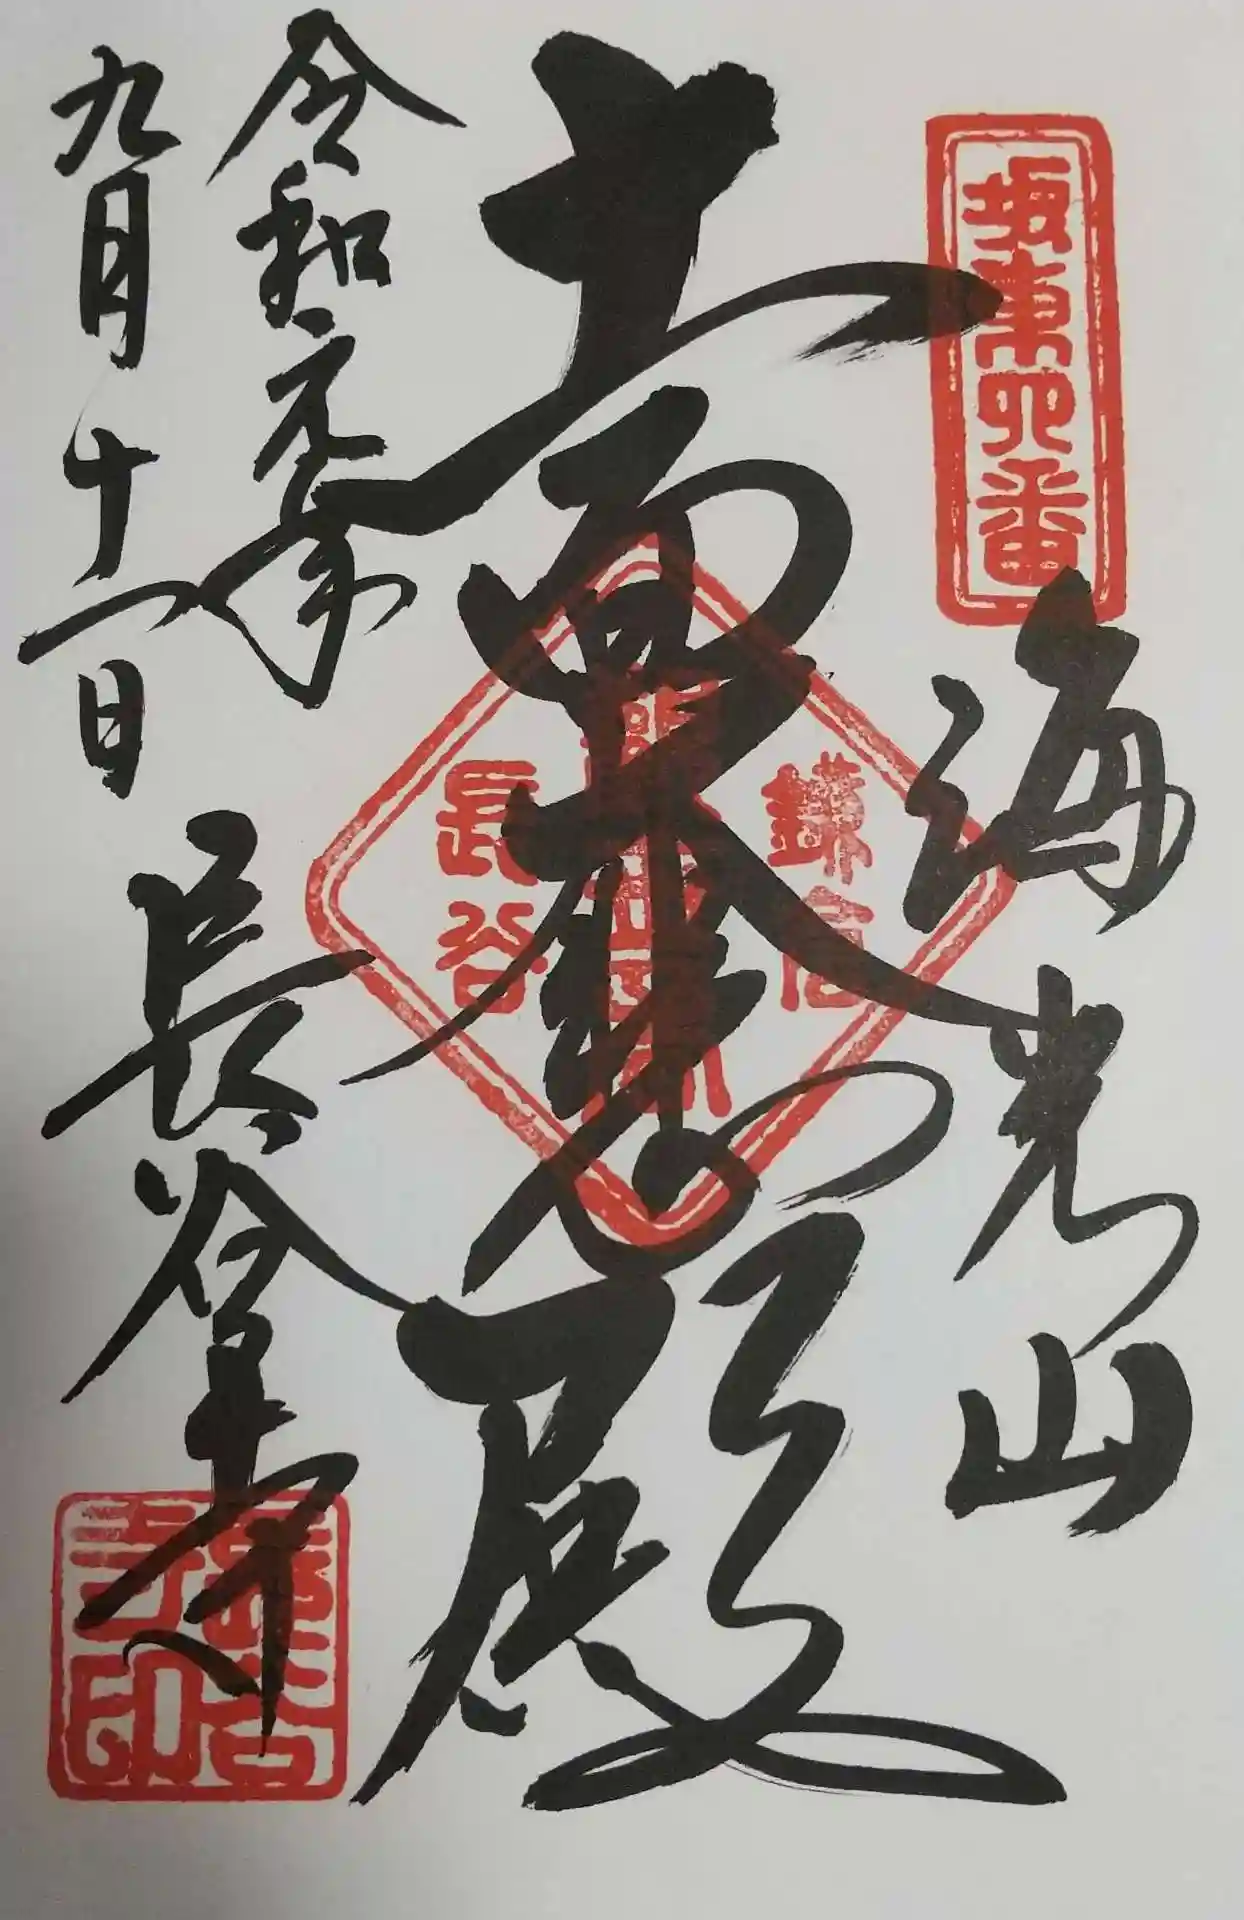 坂東四番
海光山
十一面大悲殿
鎌倉
長谷
令和元年
九月十一日
長谷寺
長谷寺印